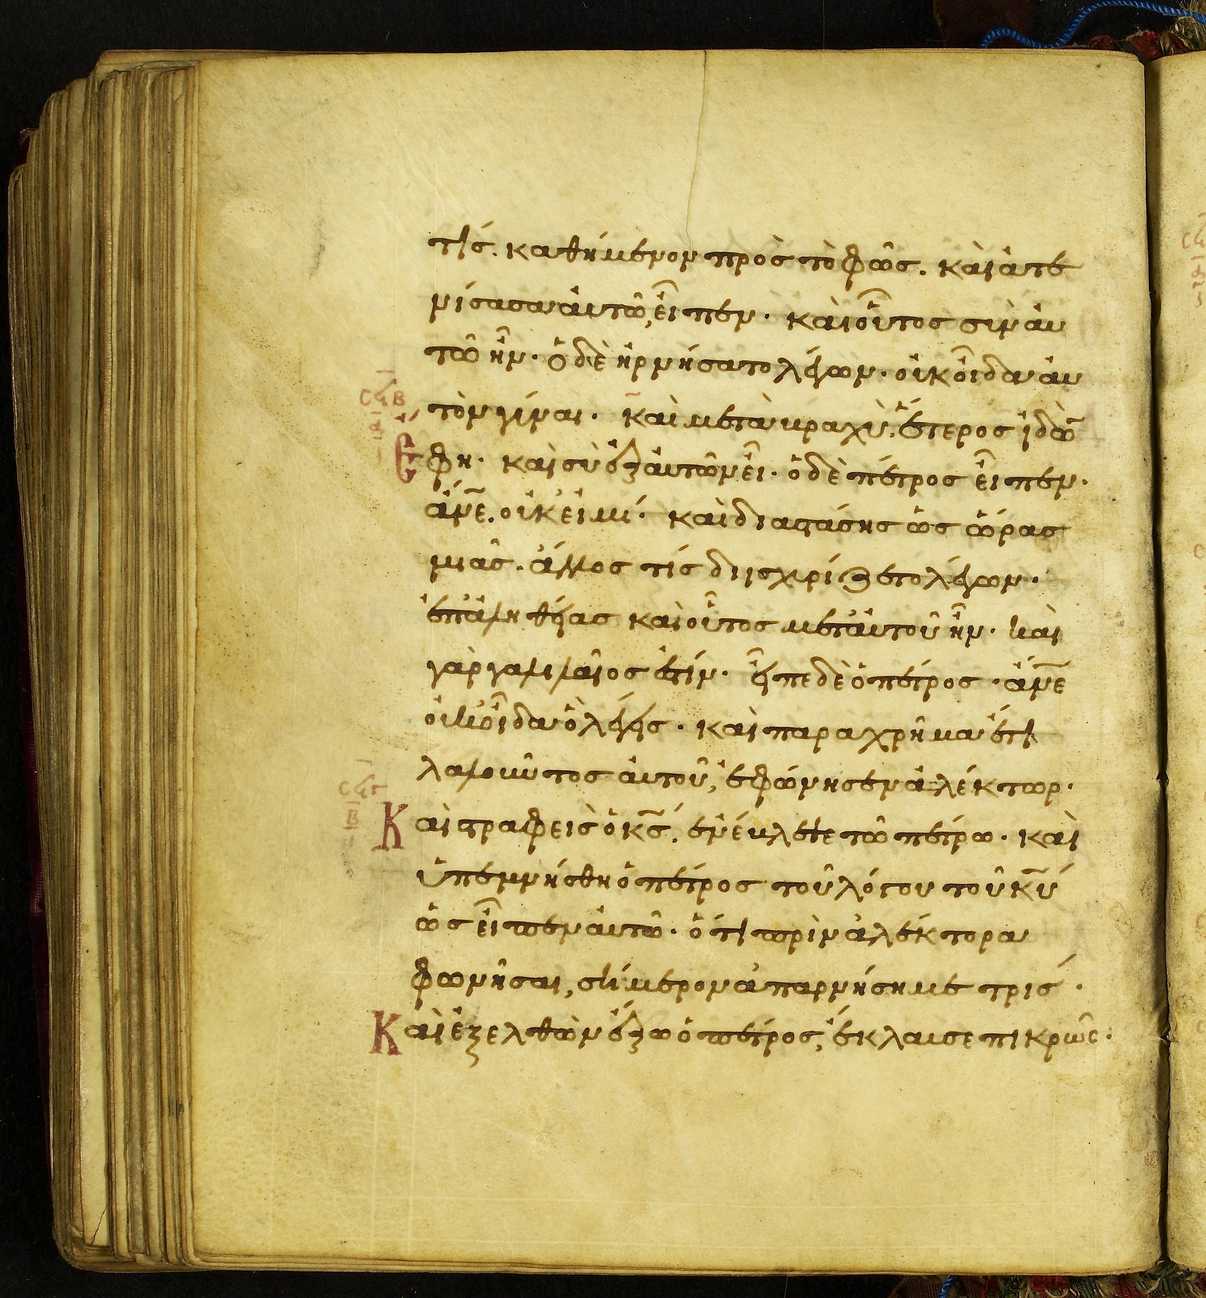 τίς. καθήμενον πρὸς τὸ φῶς. καὶ ἀτε
νίσασα αὐτῶ, εἶπεν· καὶ οὗτος σὺν αὐ
τῶ ἦν· ὁ δὲ ἠρνήσατο λέγων· οὐκ οἶδα αὐ
τὸν γύναι· καὶ μετὰ βραχὺ, ἕτερος ἰδὼν
ἔφη· καὶ σὺ ἐξ αὐτῶν εἶ· ὁ δὲ πέτρος εἶπεν·
ἄνε. οὐκ εἰμί· καὶ διαστάσης ὡς ὥρας
μιᾶς. ἄλλος τίς διϊσχυρίζετο λέγων·
ἐπἀληθείας καὶ οὗτος μετἀυτοῦ ἦν· καὶ
γὰρ γαλιλαῖος ἐστίν· εἶπε δὲ ὁ πέτρος· ἄνε
οὐκ οἶδα ὃ λέγεις· καὶ παραχρῆμα ἔτι
λαλοῦντος αὐτοῦ, ἐφώνησεν ἀλέκτωρ·
Καὶ στραφεὶς ὁ κς, ἐνέβλεψε τῶ πέτρω· καὶ
ὑπεμνήσθη ὁ πέτρος τοῦ λόγου τοῦ κυ
ὡς εἶπεν αὐτῶ· ὅτι πρὶν ἀλέκτορα
φωνῆσαι, σήμερον ἀπαρνήση με τρίς·
Καὶ ἐξελθὼν ἔξω ὁ πέτρος, ἔκλαυσε πικρῶς·